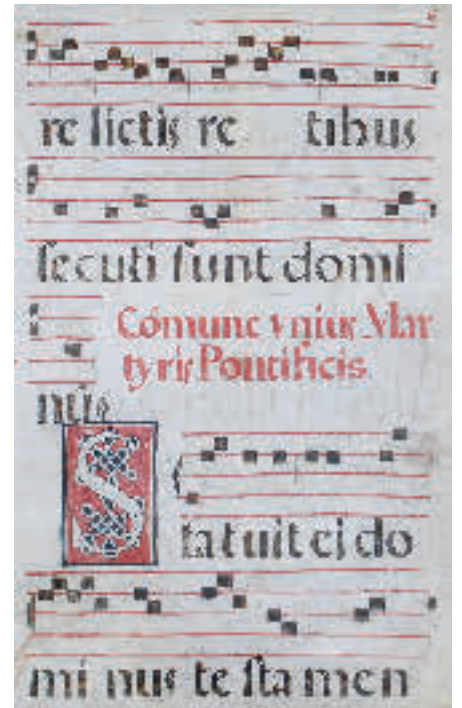 re lictis re tibus
secuti sunt domi
Cómune vnius Mar
tyris Pontificis
nus
Statuit ei do
mi nus te sta men